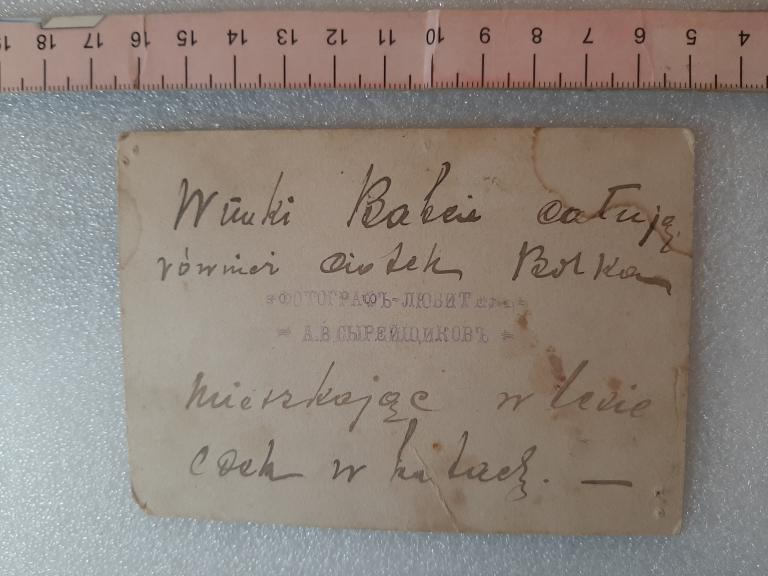 19 18 17 16 15 14 13 12 11 10 9 8 7 6 5 4
Wnuki Babcie całują
również ciotek Bolka
ФОТОГРАФЪ-ЛЮБИТель
А.В СЫРЕЙЩИКОВЪ
mieszkając w lecie
w